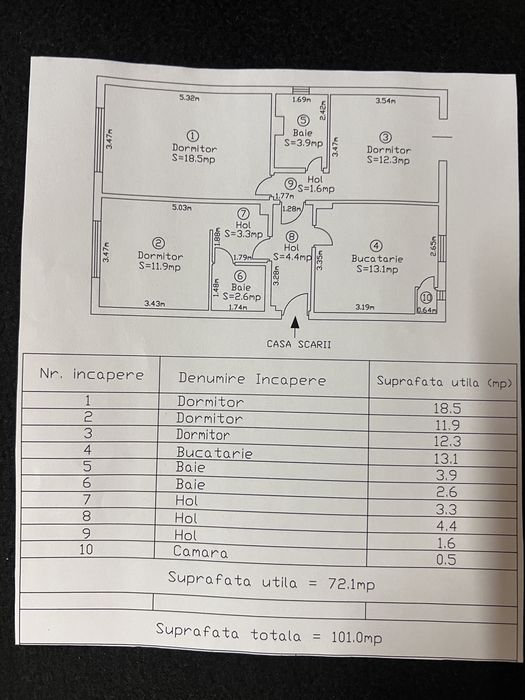 5.32m
1.69m
3.54m
3.47m
①
Dormitor
S=18.5mp
2.42m
⑤
Baie
S=3.9mp
3.47m
③
Dormitor
S=12.3mp
⑨
Hol
S=1.6mp
1.77m
1.28m
5.03m
3.47m
②
Dormitor
S=11.9mp
3.43m
⑦
Hol
S=3.3mp
1.88m
1.79m
⑧
Hol
S=4.4mp
3.28m
3.35m
④
Bucatarie
S=13.1mp
2.65m
3.19m
⑥
Baie
S=2.6mp
1.48m
1.74m
⑩
0.64m
CASA SCARII
Nr. incapere Denumire Incapere Suprafata utila (mp)
1 Dormitor 18.5
2 Dormitor 11.9
3 Dormitor 12.3
4 Bucatarie 13.1
5 Baie 3.9
6 Baie 2.6
7 Hol 3.3
8 Hol 4.4
9 Hol 1.6
10 Camara 0.5
Suprafata utila = 72.1mp
Suprafata totala = 101.0mp